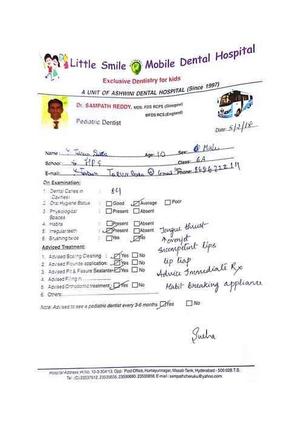 Little Smile Mobile Dental Hospital
Exclusive Dentistry for kids
A UNIT OF ASHWINI DENTAL HOSPITAL (Since 1997)
Dr. SAMPATH REDDY, MDS, FDS RCPS (Glasgow)
MFDS RCS (England)
Pediatric Dentist
Date: 5/2/18
Name: Age: 10 Sex: Male
School: Class: 6A
E-mail:
On Examination:
1. Dental Caries in (cavities)
2. Oral Hygiene Status : Good Average Poor
3. Physiological Spaces : Present Absent
4. Habits : Present Absent
5. Irregular teeth : Present Absent
6. Brushing twice : Yes No
Tongue thrust
incompetent lips
lip trap
Advice Immediate Rx
Habit breaking appliance
Advised Treatment:
1. Advised Scaling Cleaning : Yes No
2. Advised Fluoride application : Yes No
3. Advised Pit & Fissure Sealants : Yes No
4. Advised Filling in :
5. Advised Orthodontic treatment : Yes No
6. Others:
Note: Advised to see a pediatric dentist every 3-6 months Yes No
Hospital Address: H.No. 10-3-304/13, Opp. Post Office, Humayunnagar, Masab Tank, Hyderabad - 500 028 T.S.